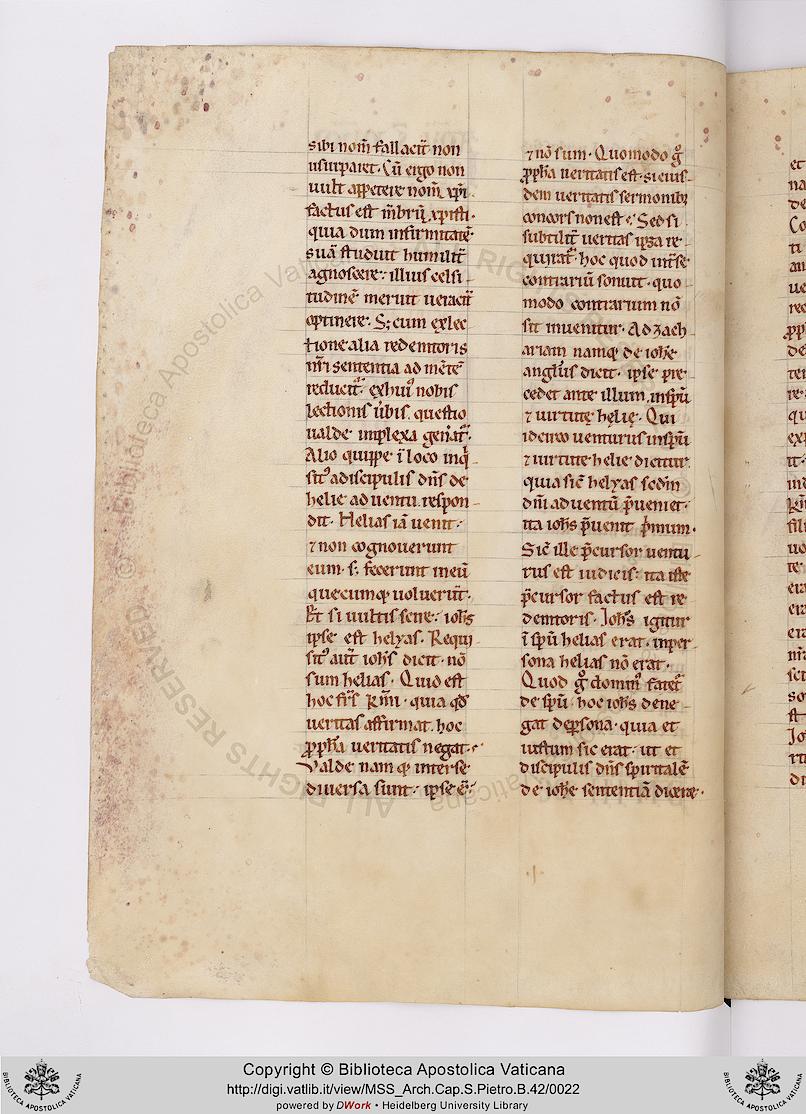 sibi nom̄ fallacit̄ non
usurparet. Cū ergo non
uult appetere nom̄ xp̄i
factus est m̄brū xp̄isti.
quia dum infirmitatē
suā studuit humilit̄
agnoscere. illius celsi
tudinē meruit ueracit̄
optinere. S; cum ex lec
tione alia redemtoris
nr̄i sententia ad mētē
reducit̄. ex huiꝰ nobis
lectionis ūbis. questio
ualde implexa gen̄at̄.
Alio quippe ī loco inq̄
sitꝰ a discipulis dn̄s de
helie aduentu. respon
dit. Helias iā uenit.
⁊ non cognouerunt
eum. s; fecerunt in eū
quecumq; uoluer̄t.
Et si uultis scire. ioh̄s
ipse est helyas. Requi
sitꝰ aut̄ ioh̄s dicit. nō
sum helias. Quid est
hoc fr̄s km̄i. quia qd̄
ueritas affirmat. hoc
ꝓpha ueritatis negat.
Valde namq; inter se
diuersa sunt. ipse ē.
⁊ nō sum. Quomodo g̊
ꝓpha ueritatis est. si eius
dem ueritatis sermonib;
concors non est. Sed si
subtilit̄ ueritas ipsa re
quirat̄. hoc quod int̄ se
contrariū sonuit. quo
modo contrarium nō
sit inuenitur. Ad zach
ariam namq; de ioh̄e
angl̄us dicit. ipse pre
cedet ante illum. in sp̄u
⁊ uirtute helie. Qui
idcirco uenturus in sp̄u
⁊ uirtute helie dicitur.
quia sic̄ helyas scd̄m
dn̄i aduentū p̄ueniet.
ita ioh̄s p̄uenit p̄mum.
Sic̄ ille p̄cursor uentu
rus est iudicis. ita iste
p̄cursor factus est re
demtoris. Ioh̄s igitur
ī sp̄u helias erat. in per
sona helias nō erat.
Quod g̊ dominꝰ fatet̄
de sp̄u. hoc ioh̄s dene
gat de persona. quia et
iustum sic erat. ut et
discipulis dn̄s spiritalē
de ioh̄e sententiā diceret.
Copyright © Biblioteca Apostolica Vaticana
http://digi.vatlib.it/view/MSS_Arch.Cap.S.Pietro.B.42/0022
powered by DWork • Heidelberg University Library